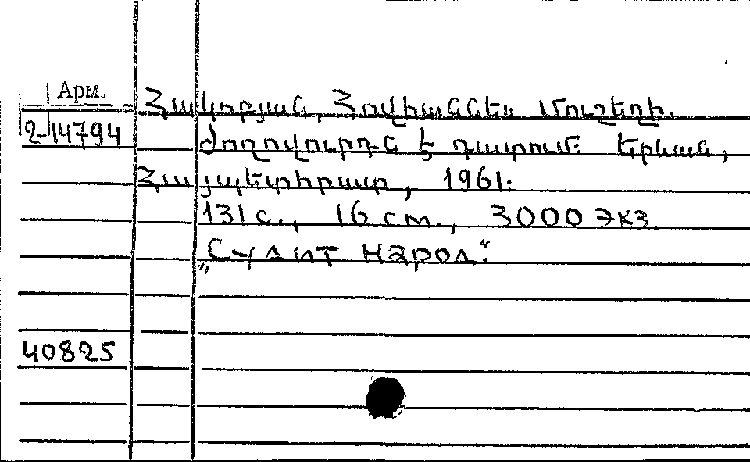 Арм.
Հակոբյան, Հովհաննես Մուշեղի.
2-14794
Ժողովուրդն է դատում. Երևան,
Հայպետհրատ, 1961.
131 с., 16 см., 3000 экз.
„Судит народ“.
40825